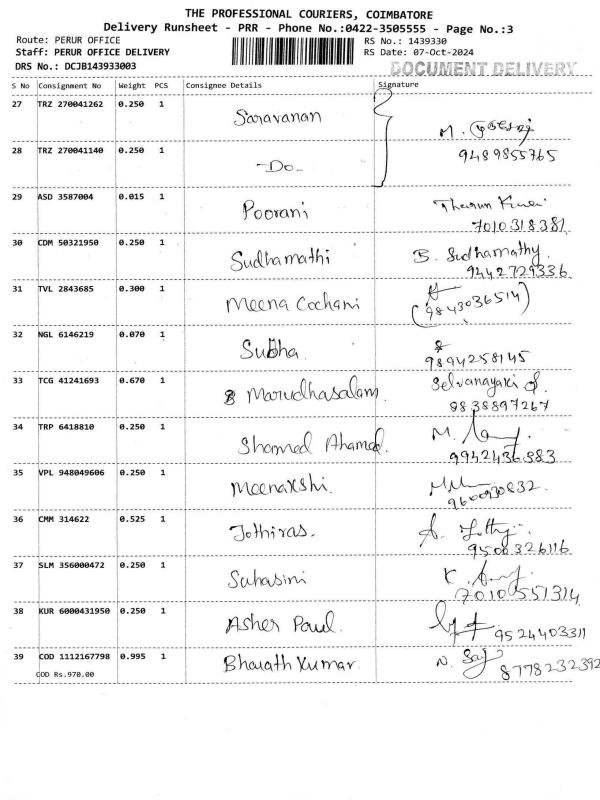 THE PROFESSIONAL COURIERS, COIMBATORE
Delivery Runsheet - PRR - Phone No.:0422-3505555 - Page No.:3
Route: PERUR OFFICE
RS No.: 1439330
Staff: PERUR OFFICE DELIVERY
RS Date: 07-Oct-2024
DRS No.: DCJB143933003
DOCUMENT DELIVERY
S No Consignment No Weight PCS Consignee Details Signature
27 TRZ 270041262 0.250 1 Saravanan
M.
28 TRZ 270041140 0.250 1 -Do-
9489855765
29 ASD 3587004 0.015 1 Poorani Tharun
7010318381
30 CDM 50321950 0.250 1 Sudhamathi B. Sudhamathy.
9442729336
31 TVL 2843685 0.300 1 Meena Cochani
(9843036514)
32 NGL 6146219 0.070 1 Subha.
9894258145
33 TCG 41241693 0.670 1 Marudhasalam. Selvanayaki
9838897267
34 TRP 6418810 0.250 1 Shamed Ahamed. M.
9942436983
35 VPL 948049606 0.250 1 Meenakshi.
36 CMM 314622 0.525 1 Jothiras. A.
9500326116
37 SLM 356000472 0.250 1 Suhasini K.
7010551314
38 KUR 6000431950 0.250 1 Asher Paul.
9524403311
39 COD 1112167798 0.995 1 Bharath Kumar. N.
8778232392
COD Rs.970.00